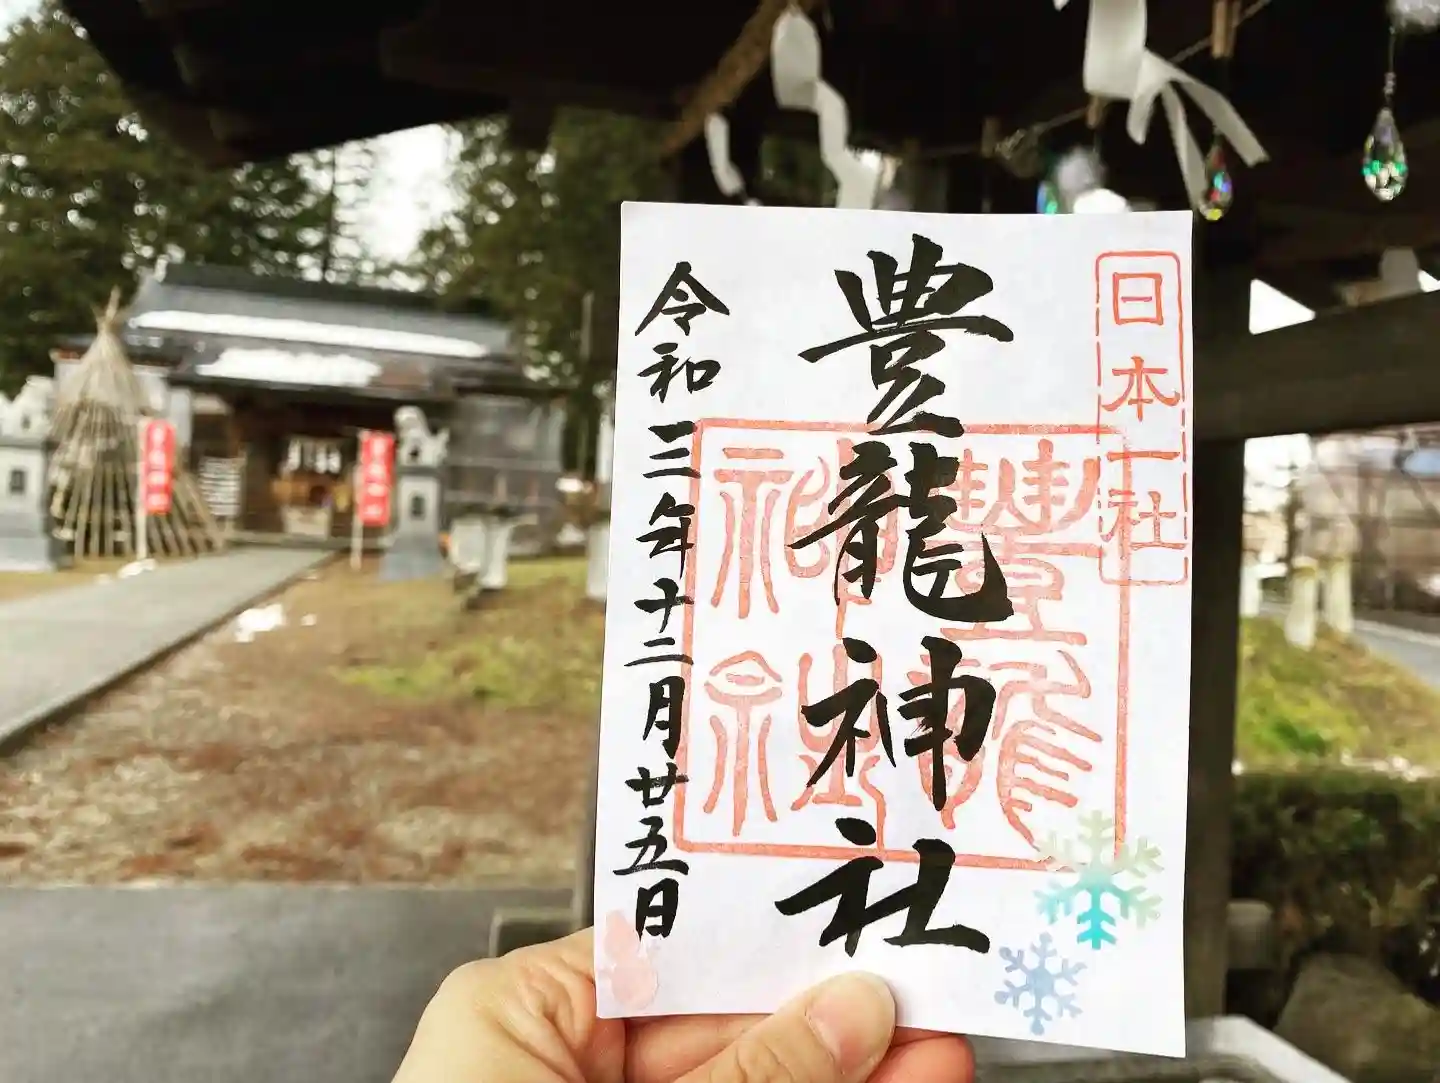 日本一社
豊龍神社
令和三年十二月廿五日